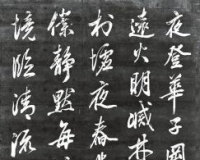 夜登華子岡
遠火明滅林
村墟夜舂
僕靜默每
臨清流